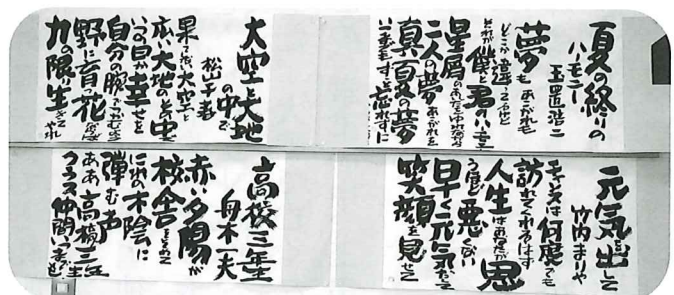 夏の終りの
ハーモニー
玉置浩二
夢もあこがれも
どこか違ってるけど
それが僕と君のいま
星屑のあいだをゆれながら
二人の夢あこがれを
真夏の夢
いつまでもずっと忘れずに
大空と大地
の中で
松山千春
果てない大空と
広い大地のその中で
いつの日か幸せを
自分の腕でつかむよう
野に育つ花ならば
力の限り生きてやれ
元気を出して
竹内まりや
チャンスは何度でも
訪れてくれるはず
人生はあなたが思
うほど悪くない
早く元気だして
笑顔を見せて
高校三年生
舟木一夫
赤い夕陽が
校舎をそめて
ニレの木陰に
弾む声
ああ高校三年生
クラス仲間いつまでも